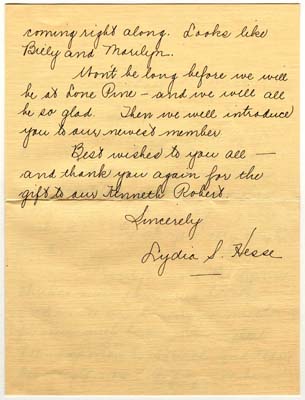 coming right along. Looks like
Billy and Marilyn.
Won't be long before we will
be at Lone Pine – and we will all
be so glad. Then we will introduce
you to our newest member
Best wishes to you all –
and thank you again for the
gift to our Kenneth Robert.
Sincerely
Lydia S. Hesse